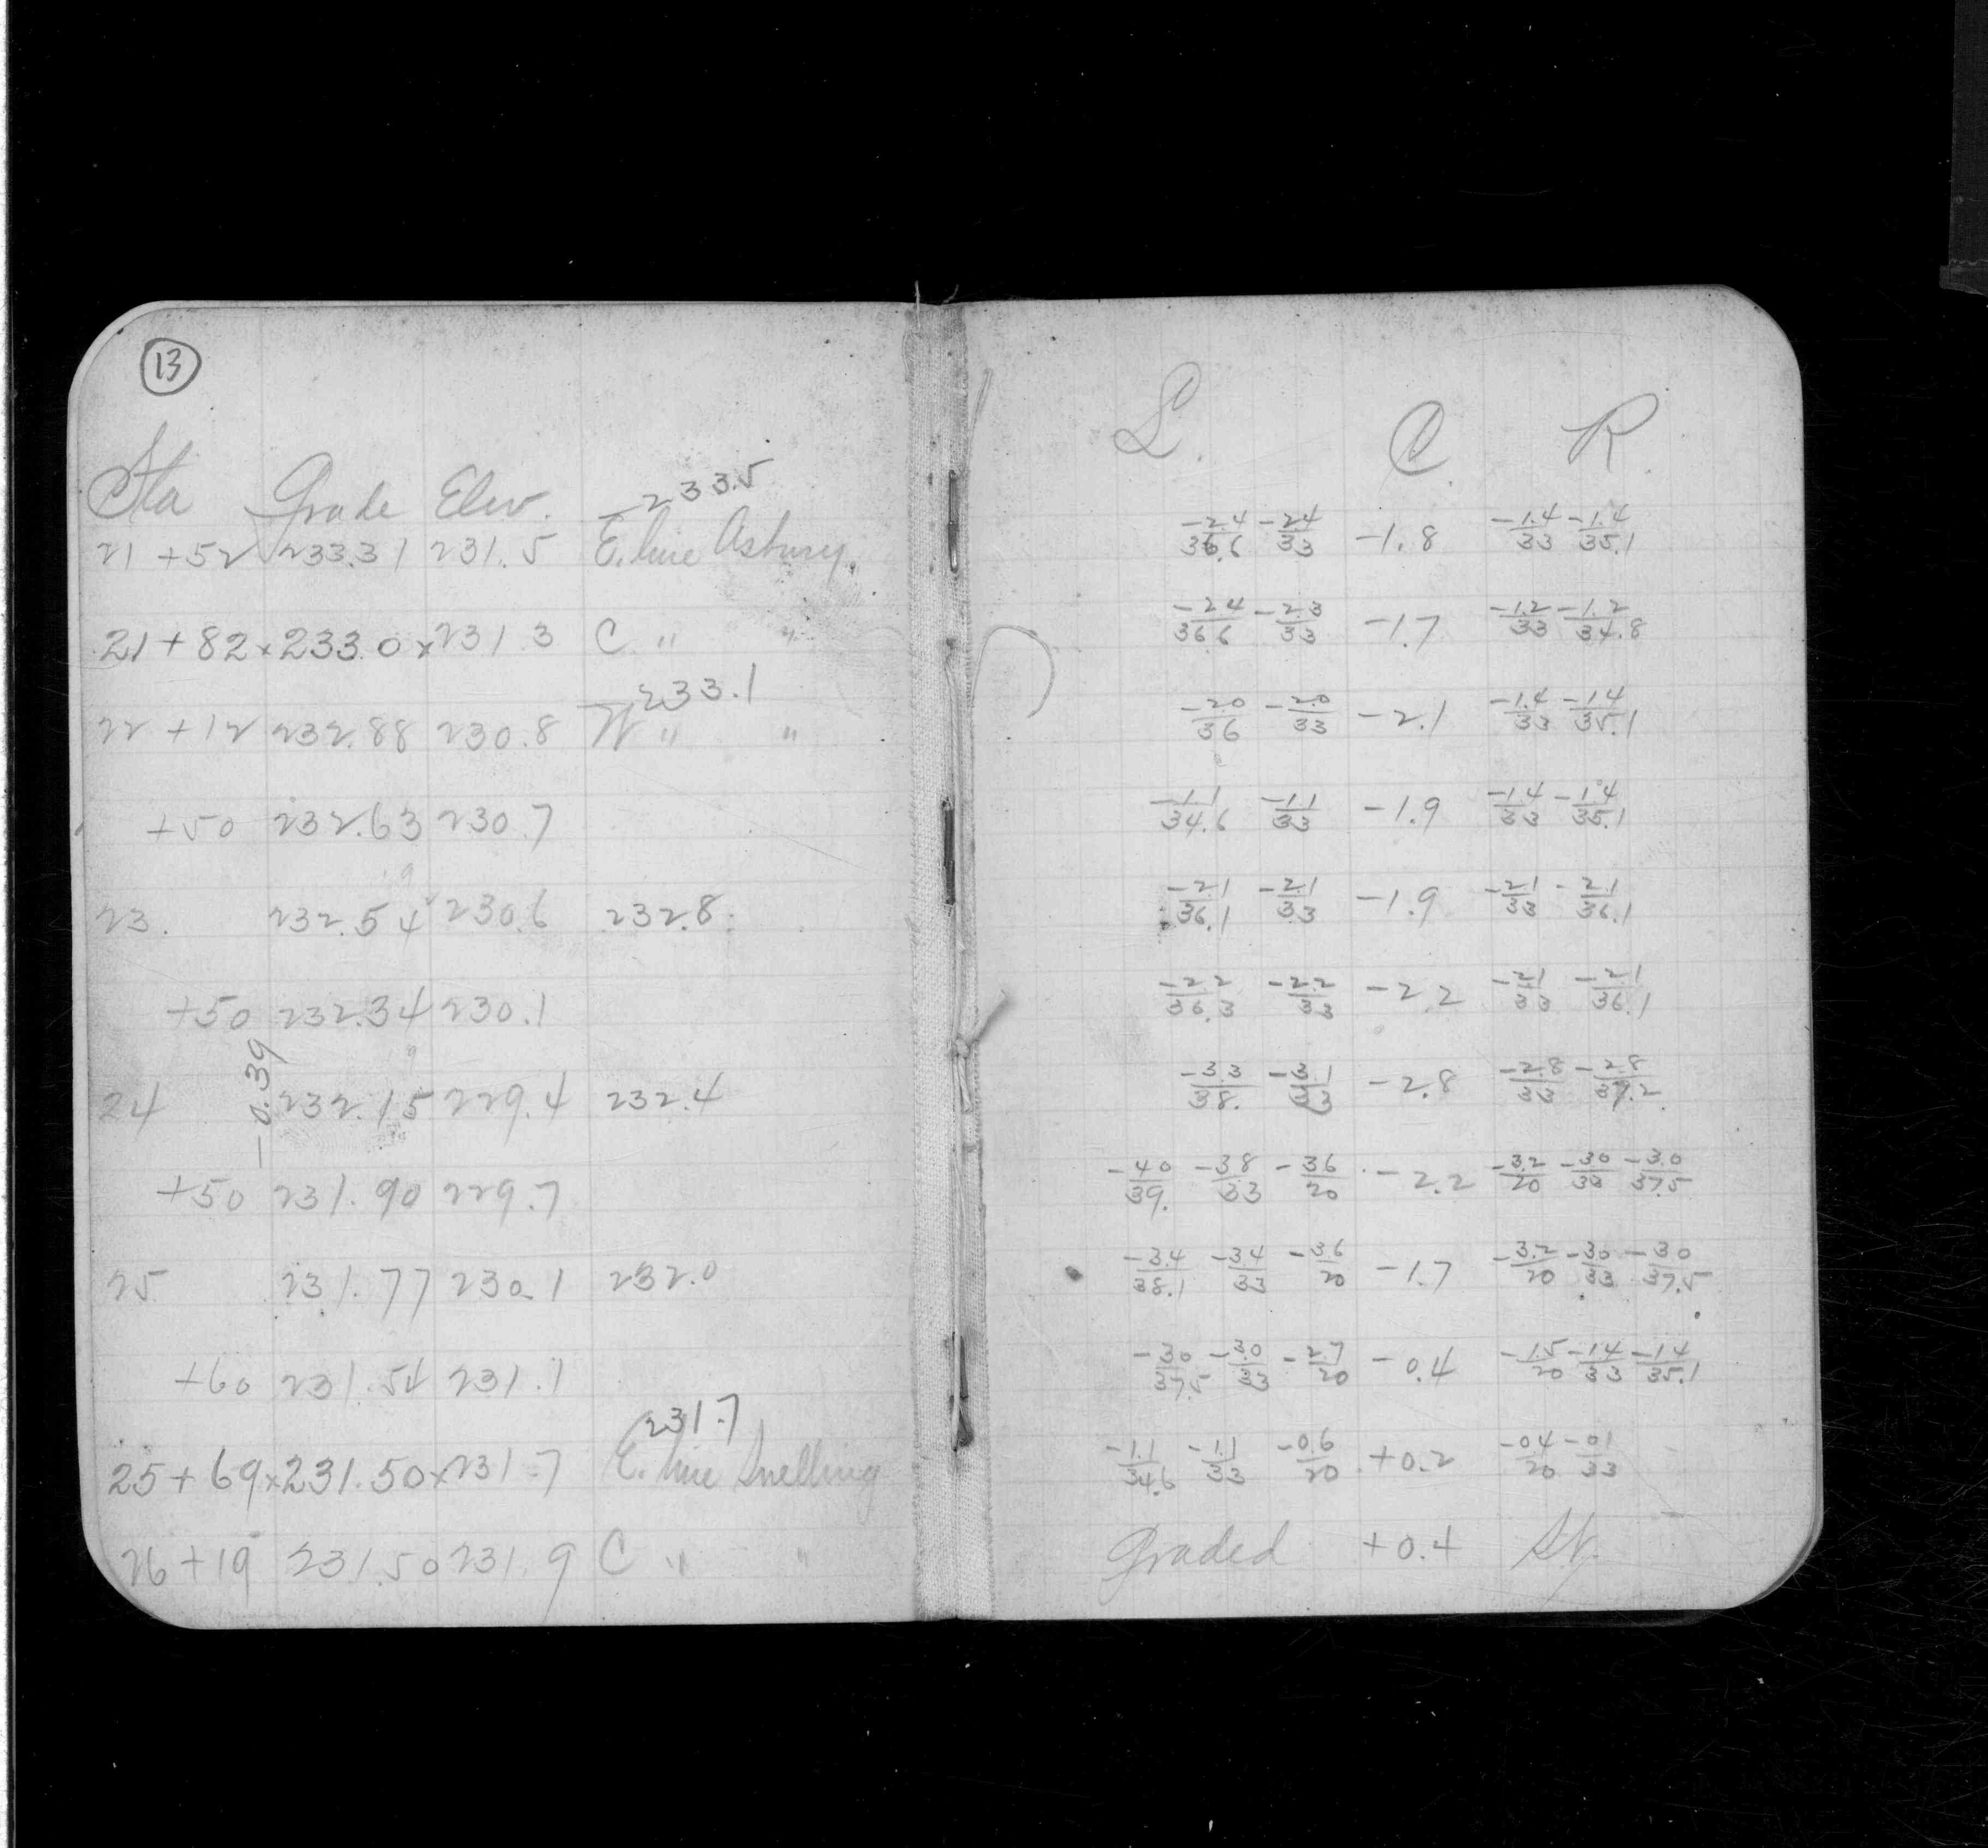 13
Sta Grade Elev. 233.5
21 +52 233.31 231.5 E. line Asbury.
21 + 82 x 233.0 x 231.3 C " "
233.1
22 +12 232.88 230.8 W " "
+50 232.63 230.7
23. 232.54 230.6 232.8.
+50 232.34 230.1
-0.39
24 232.15 229.4 232.4
+50 231.90 229.7
25 231.77 230.1 232.0
+60 231.54 231.1
231.7
25 + 69 x 231.50 x 231.7 E. line Snelling
26 +19 231.50 231.9 C " "
L. C R.
-2.4/36.6 -2.4/33 -1.8 -1.4/33 -1.4/35.1
-2.4/36.6 -2.3/33 -1.7 -1.2/33 -1.2/34.8
-2.0/36 -2.0/33 -2.1 -1.4/33 -1.4/35.1
-1.1/34.6 -1.1/33 -1.9 -1.4/33 -1.4/35.1
-2.1/36.1 -2.1/33 -1.9 -2.1/33 -2.1/36.1
-2.2/36.3 -2.2/33 -2.2 -2.1/33 -2.1/36.1
-3.3/38. -3.1/33 -2.8 -2.8/33 -2.8/37.2
-4.0/39. -3.8/33 -3.6/20 -2.2 -3.2/20 -3.0/33 -3.0/37.5
-3.4/38.1 -3.4/33 -3.6/20 -1.7 -3.2/20 -3.0/33 -3.0/37.5
-3.0/37.5 -3.0/33 -2.7/20 -0.4 -1.5/20 -1.4/33 -1.4/35.1
-1.1/34.6 -1.1/33 -0.6/20 +0.2 -0.4/20 -0.1/33
Graded +0.4 St.